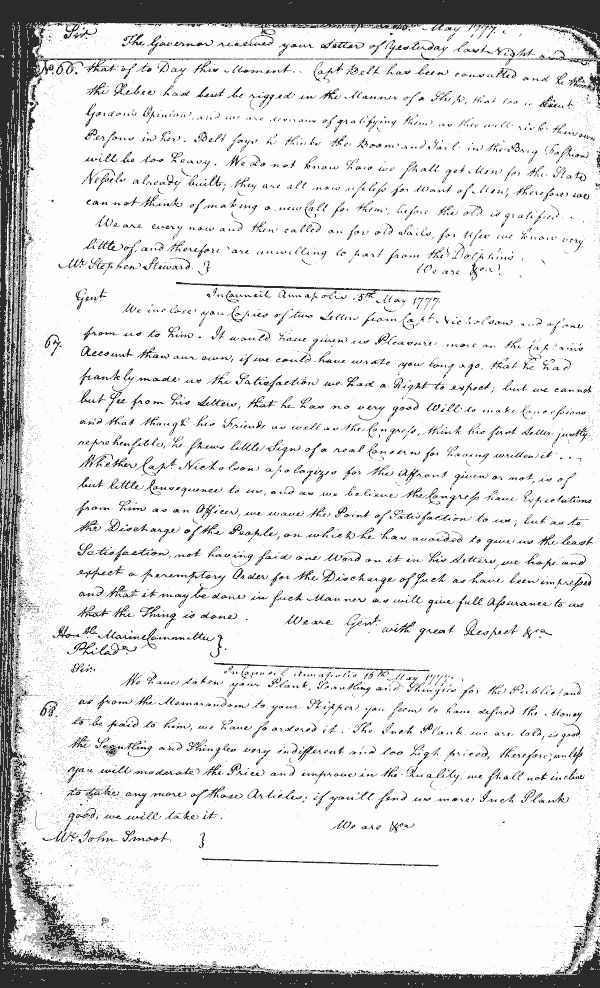 May 1777.
Sir.
The Governor received your Letter of Yesterday last Night and
No. 66. that of to Day this Moment. Capt Belt has been consulted and he thinks
the Xebec had best be rigged in the Manner of a Ship, that too is Lieut
Gordon's Opinion, and we are desirous of gratifying them, as they will risk their own
Persons in her. Belt says he thinks the Boom and Sail in the Brig Fashion
will be too heavy. We do not know how we shall get Men for the State
Vessels already built, they are all now useless for Want of Men, therefore we
cannot think of making a new Call for them, before the old is gratified.
We are every now and then called on for old Sails, for Uses we know very
little of, and therefore are unwilling to part from the Dolphins.
Mr. Stephen Steward. } We are &ca.
In Council Annapolis 15th May 1777.
Gent
We inclose you Copies of two Letters from Capt. Nicholson, and of one
67. from us to him. It would have given us Pleasure more on the Captain's
Account than our own, if we could have wrote you long ago, that he had
frankly made us the Satisfaction we had a Right to expect; but we cannot
but see from his Letters, that he has no very good Will to make Concessions
and that though his Friends as well as the Congress, think his first Letter justly
reprehensible, he shews little Sign of a real Concern for having written it...
Whether Capt. Nicholson apologizes for the Affront given or not, is of
but little Consequence to us, and as we believe the Congress have Expectations
from him as an Officer, we wave the Point of Satisfaction to us; but as to
the Discharge of the People, on which he has avoided to give us the least
Satisfaction, not having said one Word on it in his Letters, we hope and
expect a peremptory Order for the Discharge of such as have been impressed
and that it may be done in such Manner as will give full Assurance to us
that the Thing is done. We are Gent. with great Respect &ca
Honble Marine Committee }
Philada
In Council Annapolis 16th May 1777.
Sir.
We have taken your Plank, Scantling and Shingles for the Public; and
68. as from the Memorandom to your Skipper you seem to have desired the Money
to be paid to him, we have so ordered it. The Inch Plank we are told, is good
the Scantling and Shingles very indifferent and too high priced, therefore, unless
you will moderate the Price and improve in the Quality, we shall not incline
to take any more of those Articles; if you'll send us more Inch Plank
good, we will take it.
We are &ca
Mr. John Smoot }